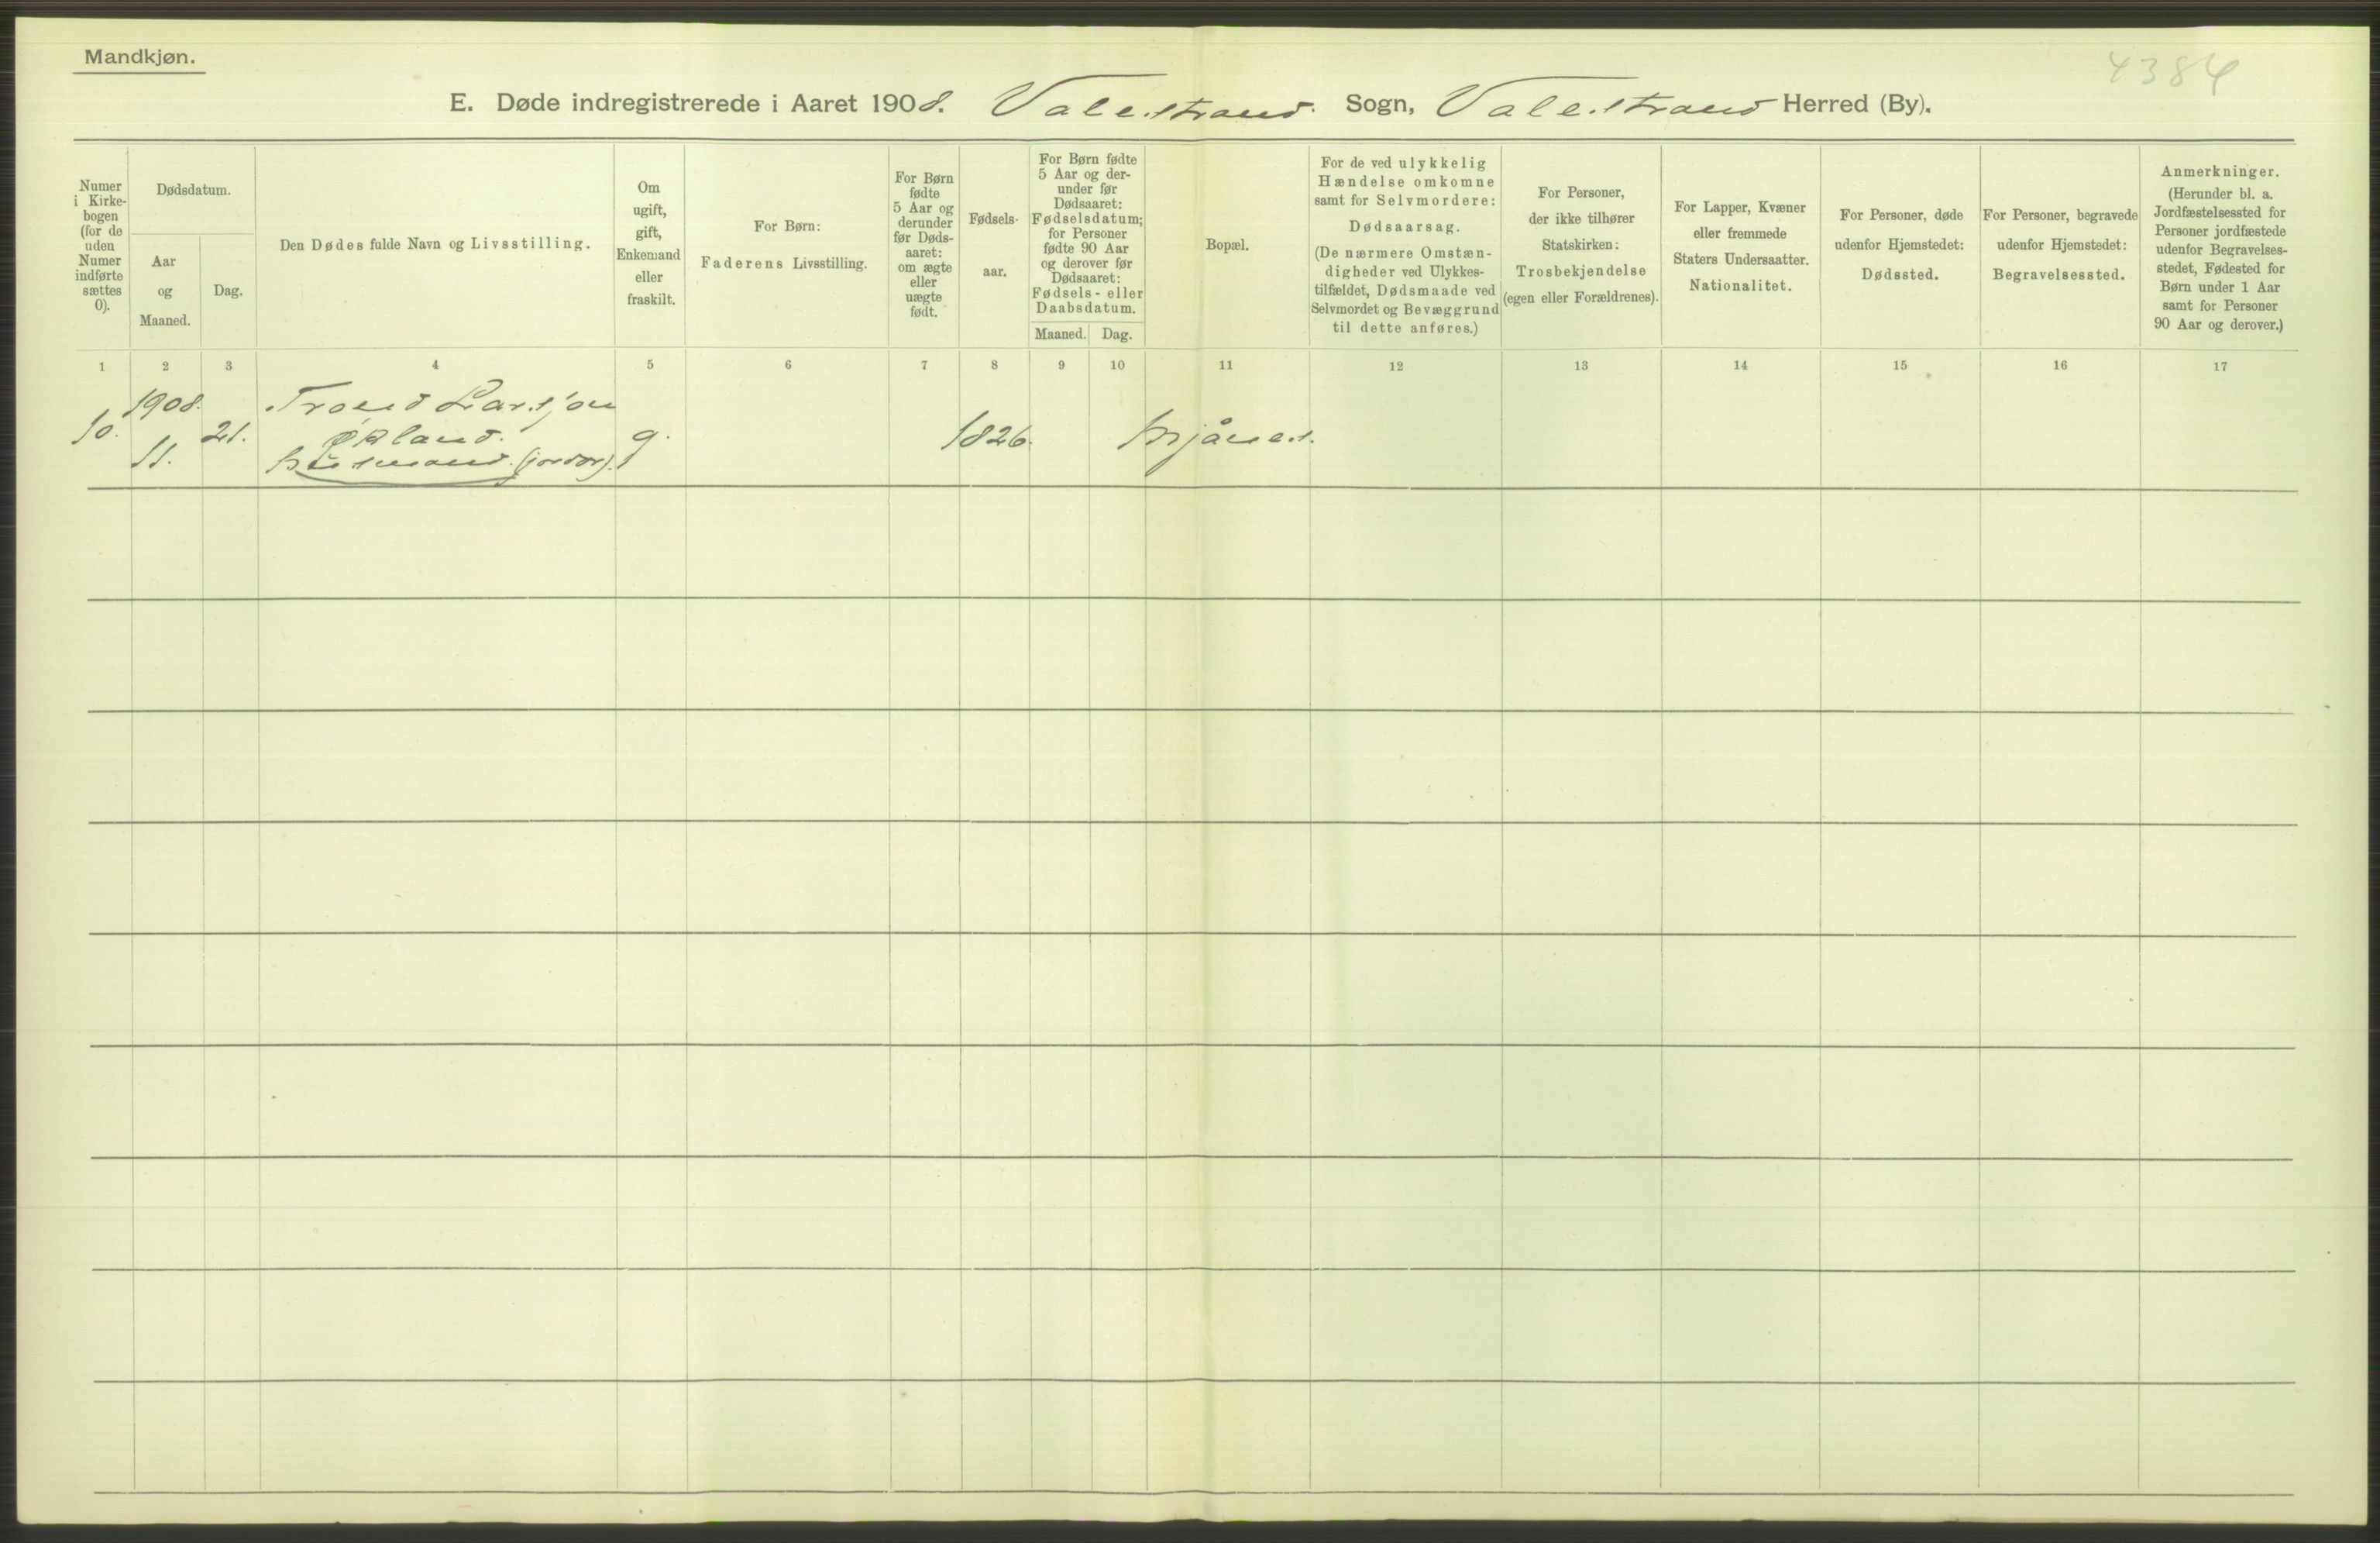 Mandkjøn.
4384
E. Døde indregistrerede i Aaret 1908. Valestrand. Sogn, Valestrand Herred (By).
Numer
i Kirke-
bogen
(for de
uden
Numer
indførte
sættes
0).
Dødsdatum.
Aar
og
Maaned.
Dag.
Den Dødes fulde Navn og Livsstilling.
Om
ugift,
gift,
Enkemand
eller
fraskilt.
For Børn:
Faderens Livsstilling.
For Børn
fødte
5 Aar og
derunder
før Døds-
aaret:
om ægte
eller
uægte
født.
Fødsels-
aar.
For Børn fødte
5 Aar og der-
under før
Dødsaaret:
Fødselsdatum;
for Personer
fødte 90 Aar
og derover før
Dødsaaret:
Fødsels- eller
Daabsdatum.
Maaned. Dag.
Bopæl.
For de ved ulykkelig
Hændelse omkomne
samt for Selvmordere:
Dødsaarsag.
(De nærmere Omstæn-
digheder ved Ulykkes-
tilfældet, Dødsmaade ved
Selvmordet og Bevæggrund
til dette anføres.)
For Personer,
der ikke tilhører
Statskirken:
Trosbekjendelse
(egen eller Forældrenes).
For Lapper, Kvæner
eller fremmede
Staters Undersaatter.
Nationalitet.
For Personer, døde
udenfor Hjemstedet:
Dødssted.
For Personer, begravede
udenfor Hjemstedet:
Begravelsessted.
Anmerkninger.
(Herunder bl. a.
Jordfæstelsessted for
Personer jordfæstede
udenfor Begravelses-
stedet, Fødested for
Børn under 1 Aar
samt for Personer
90 Aar og derover.)
1 2 3 4 5 6 7 8 9 10 11 12 13 14 15 16 17
1908. Trond Larssøn
10. 21. Økland. g. 1826.
11. husmand.